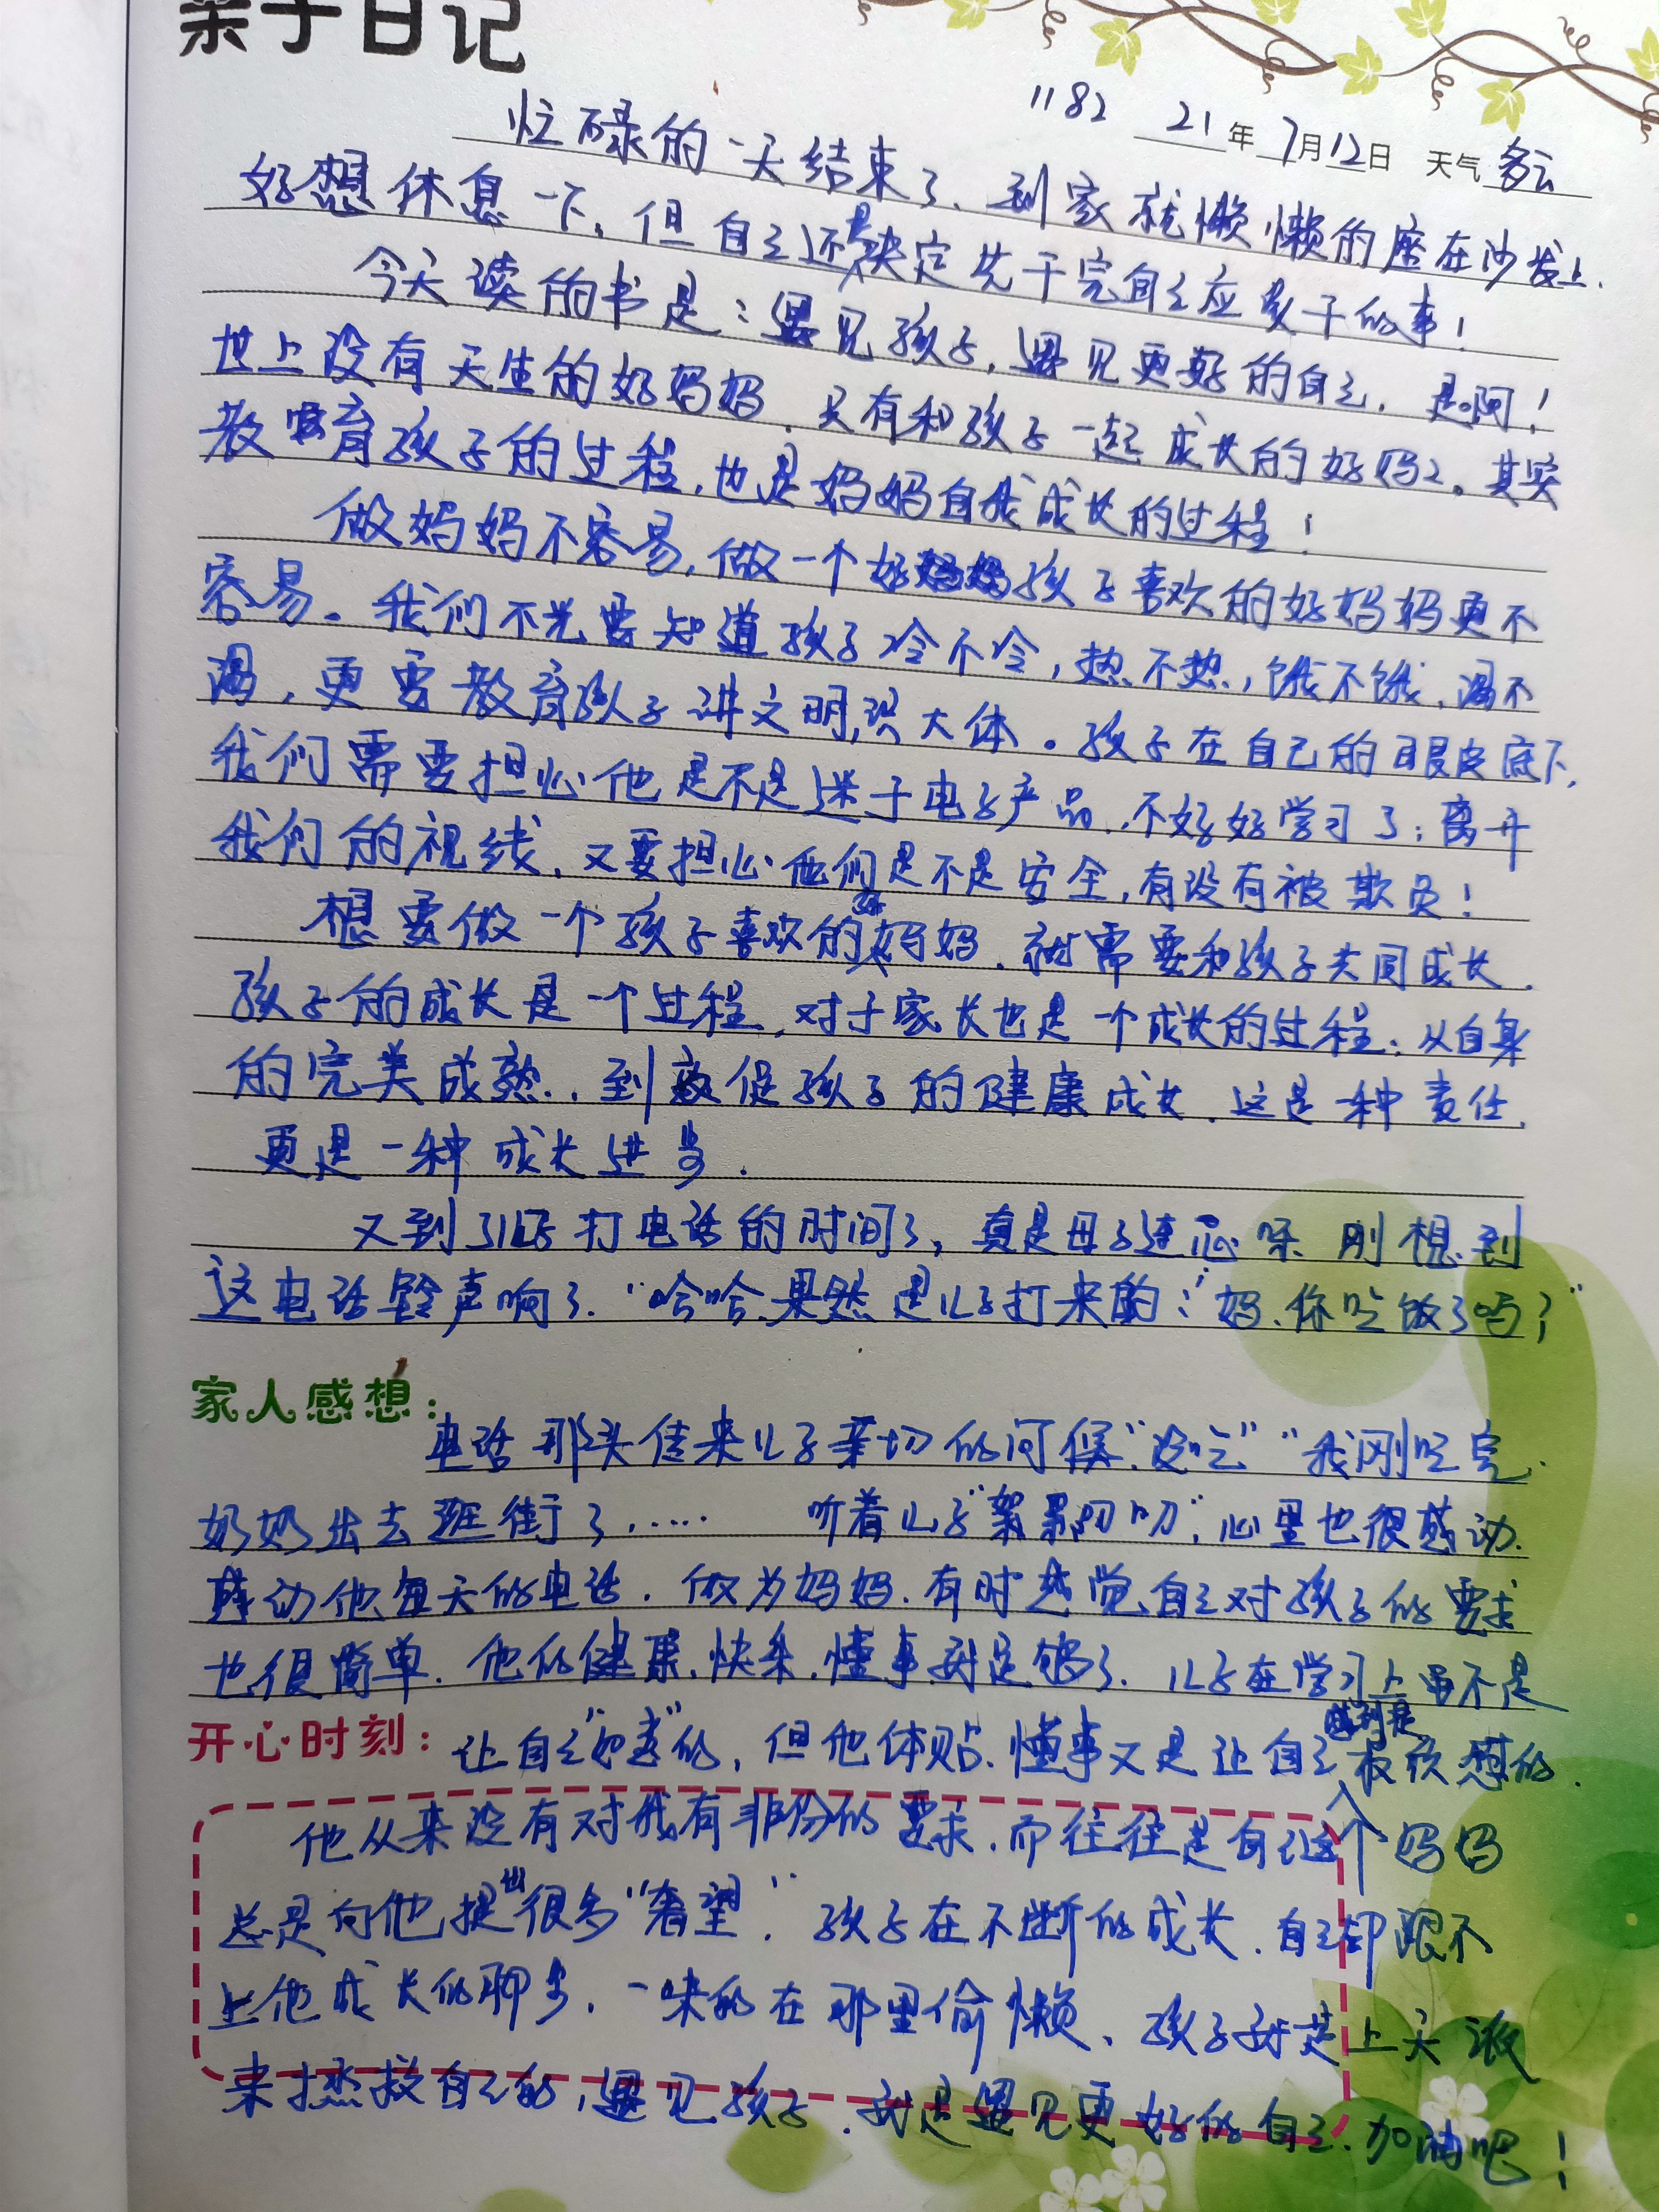 亲子日记
1182 21年7月12日 天气多云
忙碌的一天结束了、到家就懒懒的座在沙发上.
好想休息一下,但自己还是决定先干完自己应该干的事!
今天读的书是:遇见孩子,遇见更好的自己,是啊!
世上没有天生的好妈妈.只有和孩子一起成长的好妈妈。其实
教育孩子的过程,也是妈妈自我成长的过程!
做妈妈不容易,做一个好孩子喜欢的好妈妈更不
容易。我们不光要知道孩子冷不冷,热不热,饿不饿,渴不
渴,更要教育孩子讲文明,识大体。孩子在自己的眼皮底下,
我们需要担心他是不是迷于电子产品,不好好学习了;离开
我们的视线,又要担心他们是不是安全,有没有被欺负!
想要做一个孩子喜欢的好妈妈.就需要和孩子共同成长.
孩子的成长是一个过程,对于家长也是一个成长的过程;从自身
的完美成熟..到敦促孩子的健康成长.这是一种责任,
更是一种成长进步.
又到了儿子打电话的时间了,真是母子连心呀 刚想到
这电话铃声响了.“哈哈.果然是儿子打来的:“妈.你吃饭了吗?”
家人感想:
电话那头传来儿子亲切的问候“没吃”“我刚吃完.
奶奶出去逛街了…… 听着儿子“絮絮叨叨”,心里也很感动.
感动他每天的电话.做为妈妈.有时感觉自己对孩子的要求
也很简单.他的健康.快乐.懂事就足够了.儿子在学习上虽不是
开心时刻:让自己“如意”的,但他体贴.懂事又是让自己感到是最欣慰的.
他从来没有对我有非份的要求.而往往是自己这个妈妈
总是向他提出很多“奢望”.孩子在不断的成长.自己却跟不
上他成长的脚步,一味的在那里偷懒、孩子就是上天派
来拯救自己的,遇见孩子.就是遇见更好的自己.加油吧!